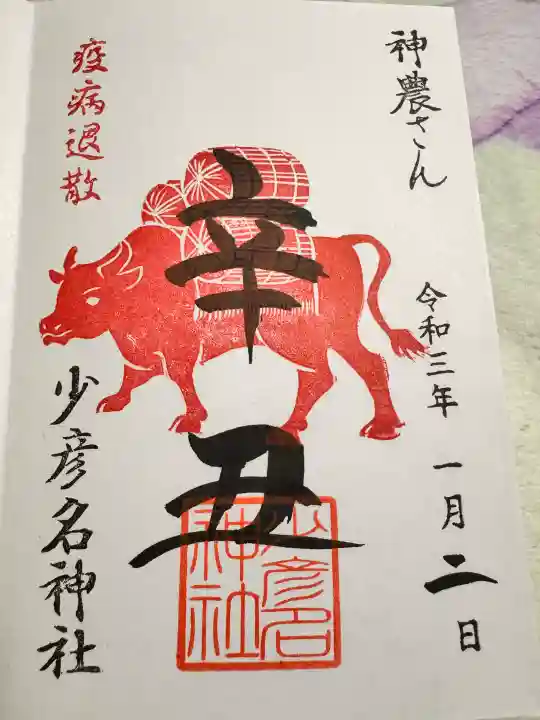 神農さん
令和三年
一月二日
辛丑
疫病退散
少彦名神社
少彦名
神社